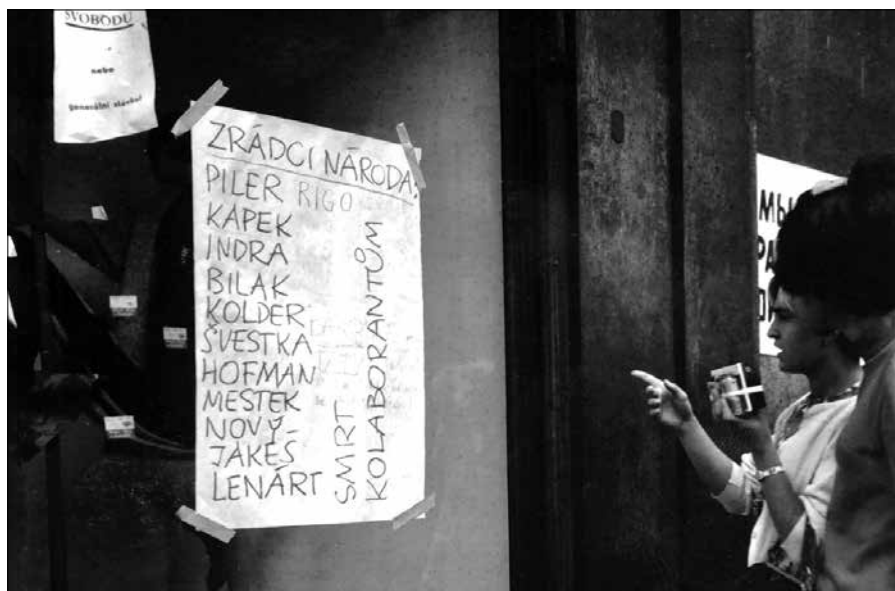 SVOBODU
nebo
generální stávku!
ZRÁDCI NÁRODA:
PILER RIGO
KAPEK
INDRA
BILAK
KOLDER
ŠVESTKA
HOFMAN
MESTEK
NOVÝ
JAKEŠ
LENÁRT
SMRT
KOLABORANTŮM
МЫ